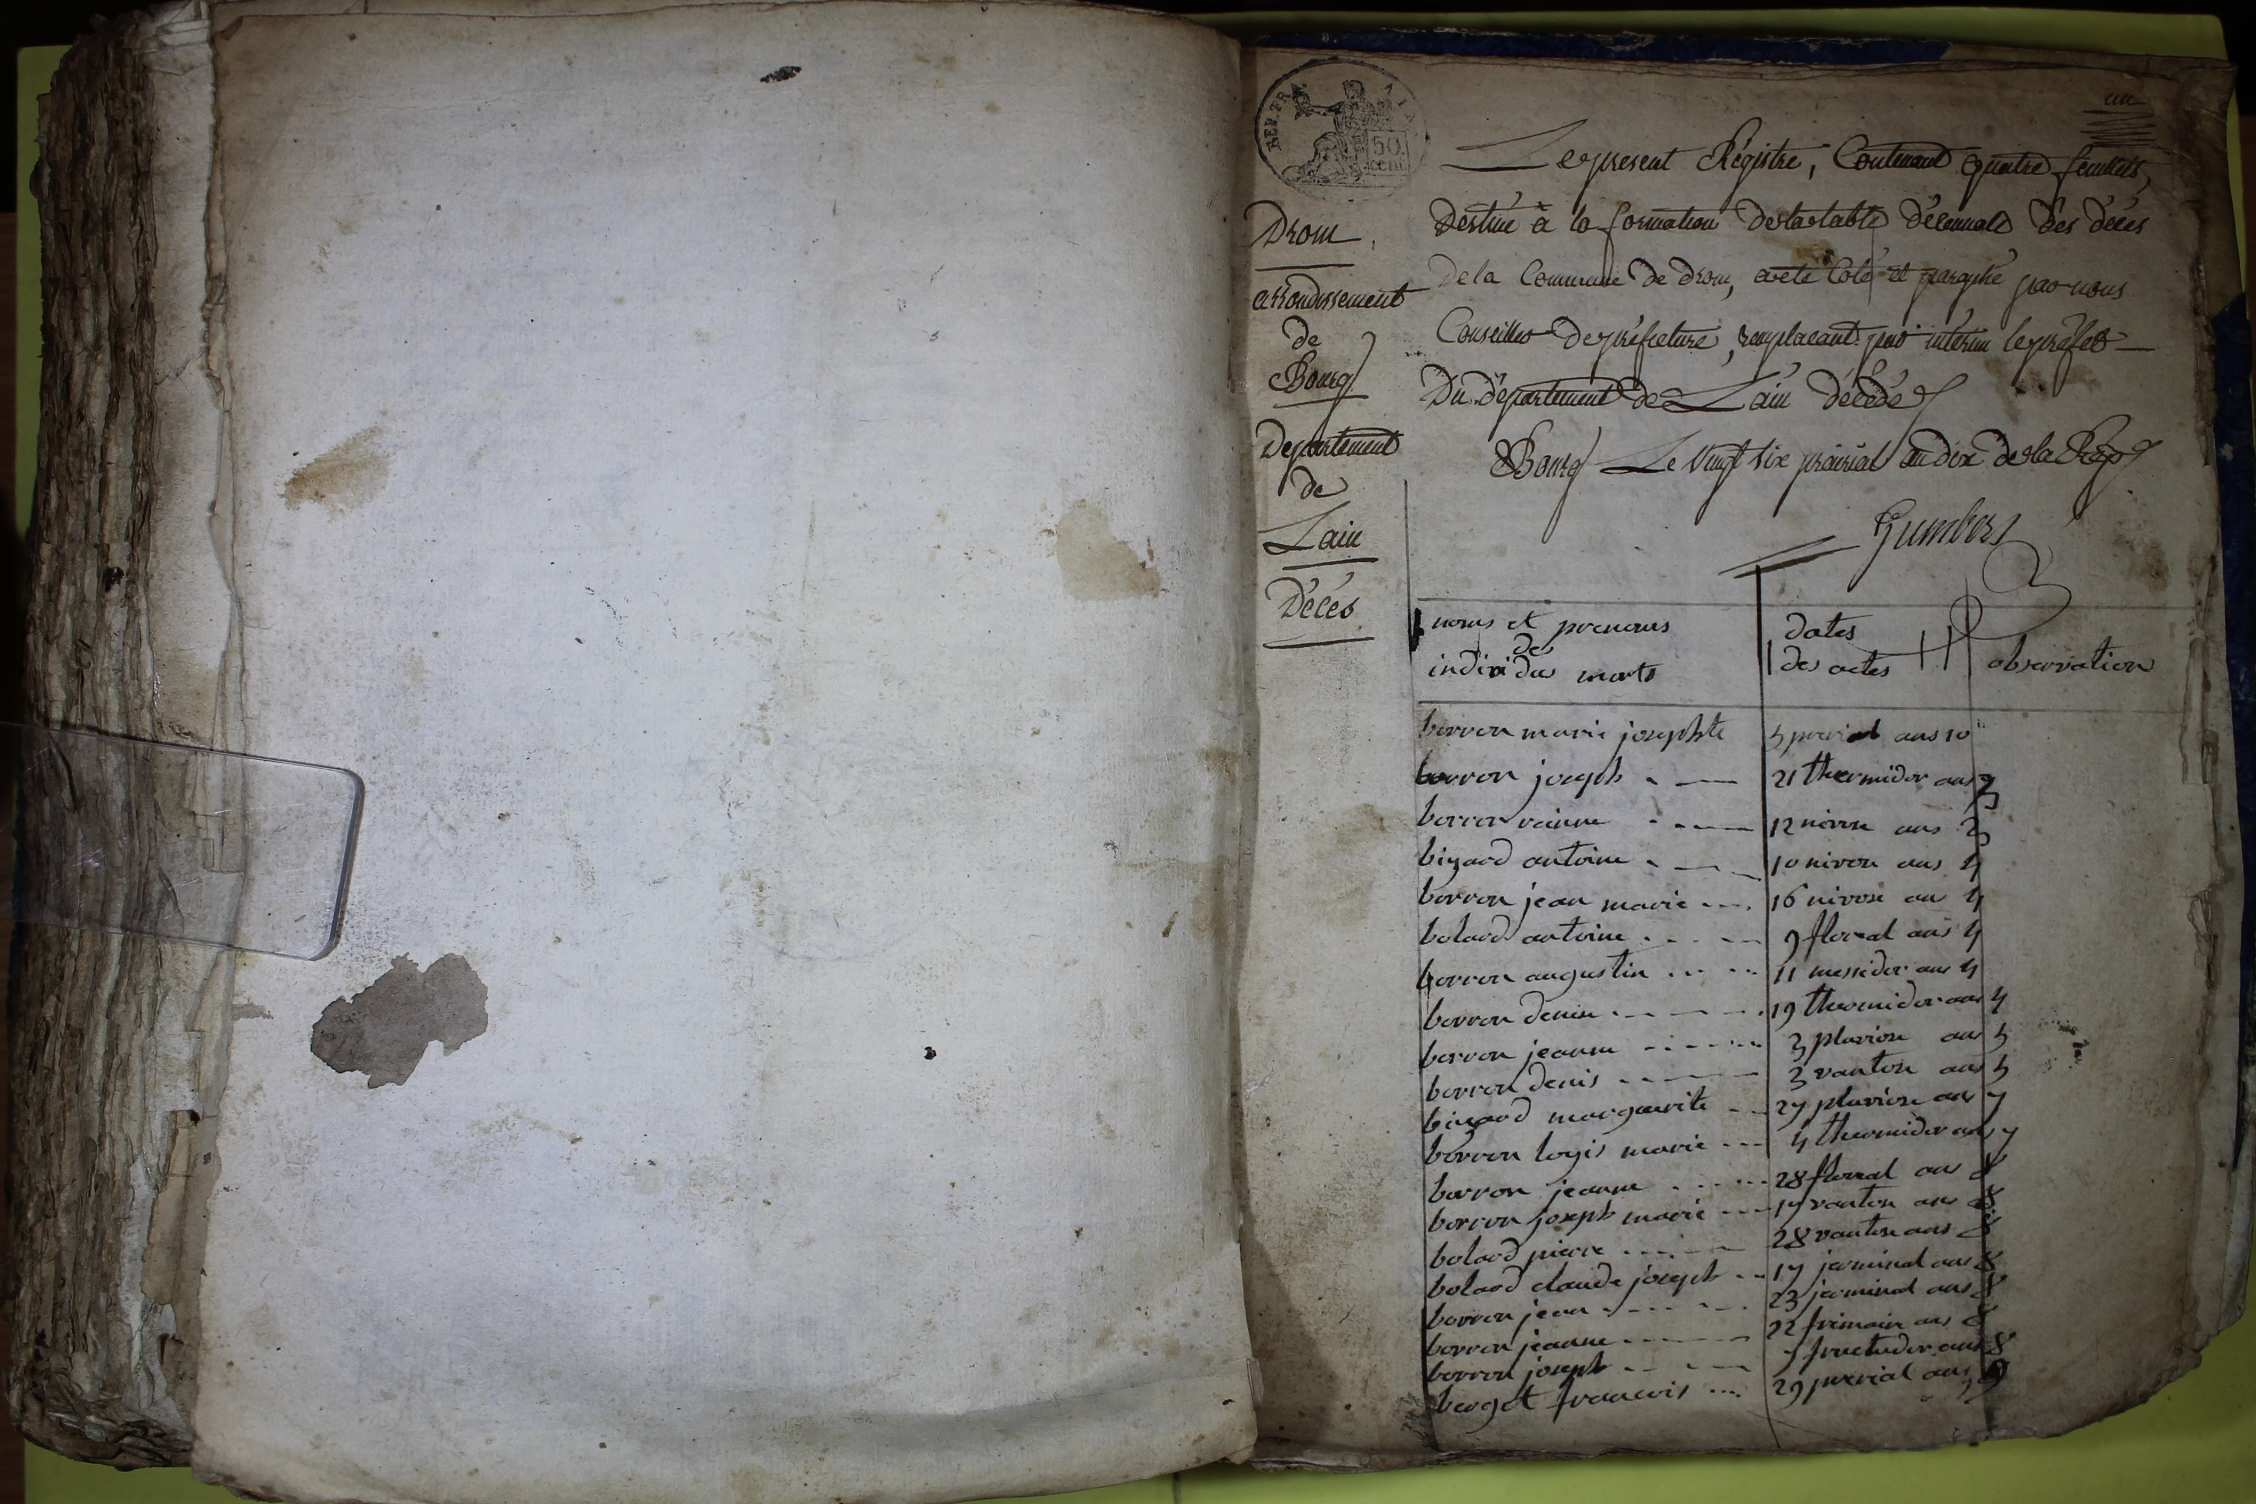 un
REP. FRA
50.
cent.
Le present Régistre, Contenant quatre feuillets,
Destiné à la formation de la table Décennale Des Décès
De la Commune de Drom, a été Coté et paraphé par nous
Conseiller de préfecture, remplacant par intérim le préfet
Du Département de L'ain Décédé
Bourg Le Vingt six prairial an dix de la Rep
Drom
arrondissement
de
Bourg
Département
de
Lain
Décés
noms et prenoms
des
individus morts
dates
des actes
observation
borron marie josephte 5 prerial ans 10
borron joseph 21 thermidor ans 3
borron 12 nivose ans 3
bizard antoine 10 nivose ans 4
borron jean marie 16 nivose an 4
bolard antoine 9 floreal ans 4
borron augustin 11 messidor ans 4
borron denise 19 thermidor ans 4
borron jeanne 3 pluviose ans 5
borron denis 3 vantose ans 5
bizard margueritte 27 pluviose ans 7
borron logis marie 4 thermidor ans 7
borron jeanne 28 floreal ans 8
borron joseph marie 17 vantose ans 8
bolard pierre 28 vantose ans 8
bolard claude joseph 17 jerminal ans 8
borron jean 23 jerminal ans 8
borron jeanne 22 frimaire ans 8
borron joseph 7 fructudor ans 8
borget francois 29 prerial ans 9